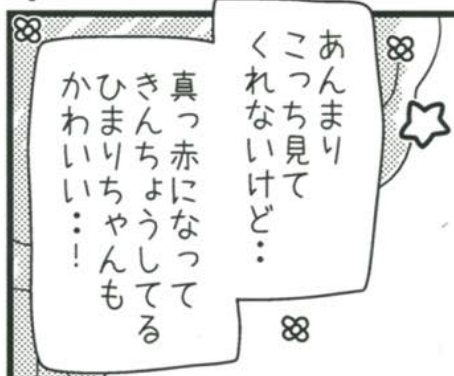 あんまり
こっち見て
くれないけど‥
真っ赤になって
きんちょうしてる
ひまりちゃんも
かわいい‥!